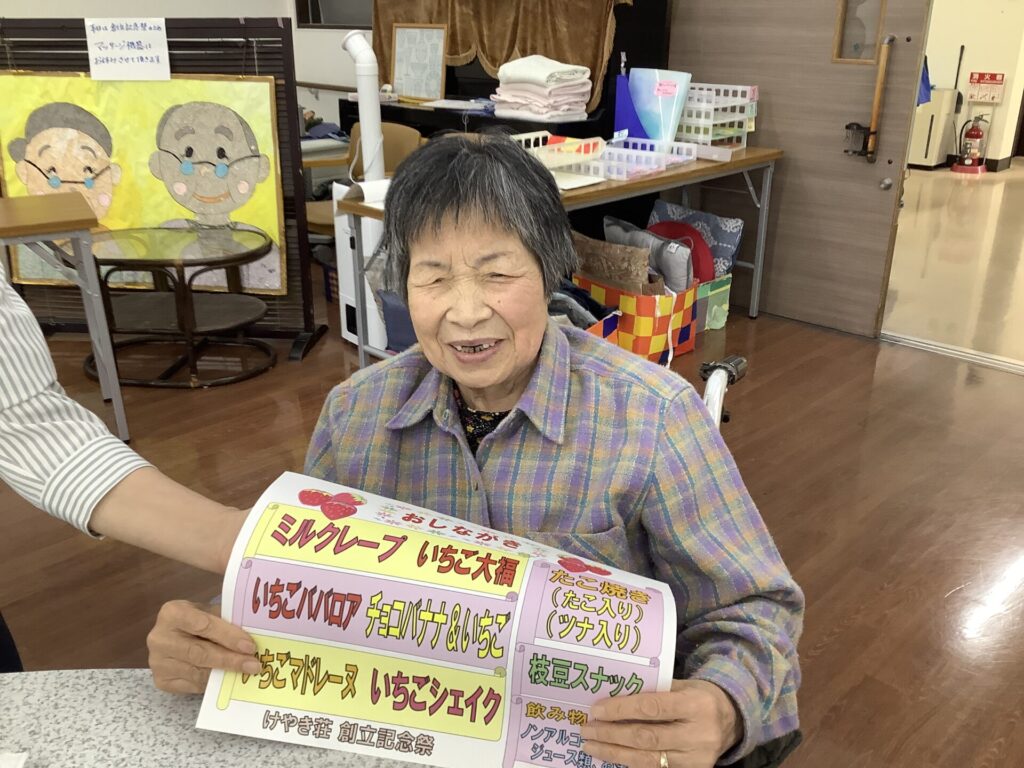 本日は創立記念祭のため
マッサージ機器は
お休みさせて頂きます
消火器
おしながき
ミルクレープ いちご大福
いちごババロア チョコバナナ&いちご
いちごマドレーヌ いちごシェイク
けやき荘 創立記念祭
たこ焼き
(たこ入り)
(ツナ入り)
枝豆スナック
飲み物
ノンアルコー
ジュース類、